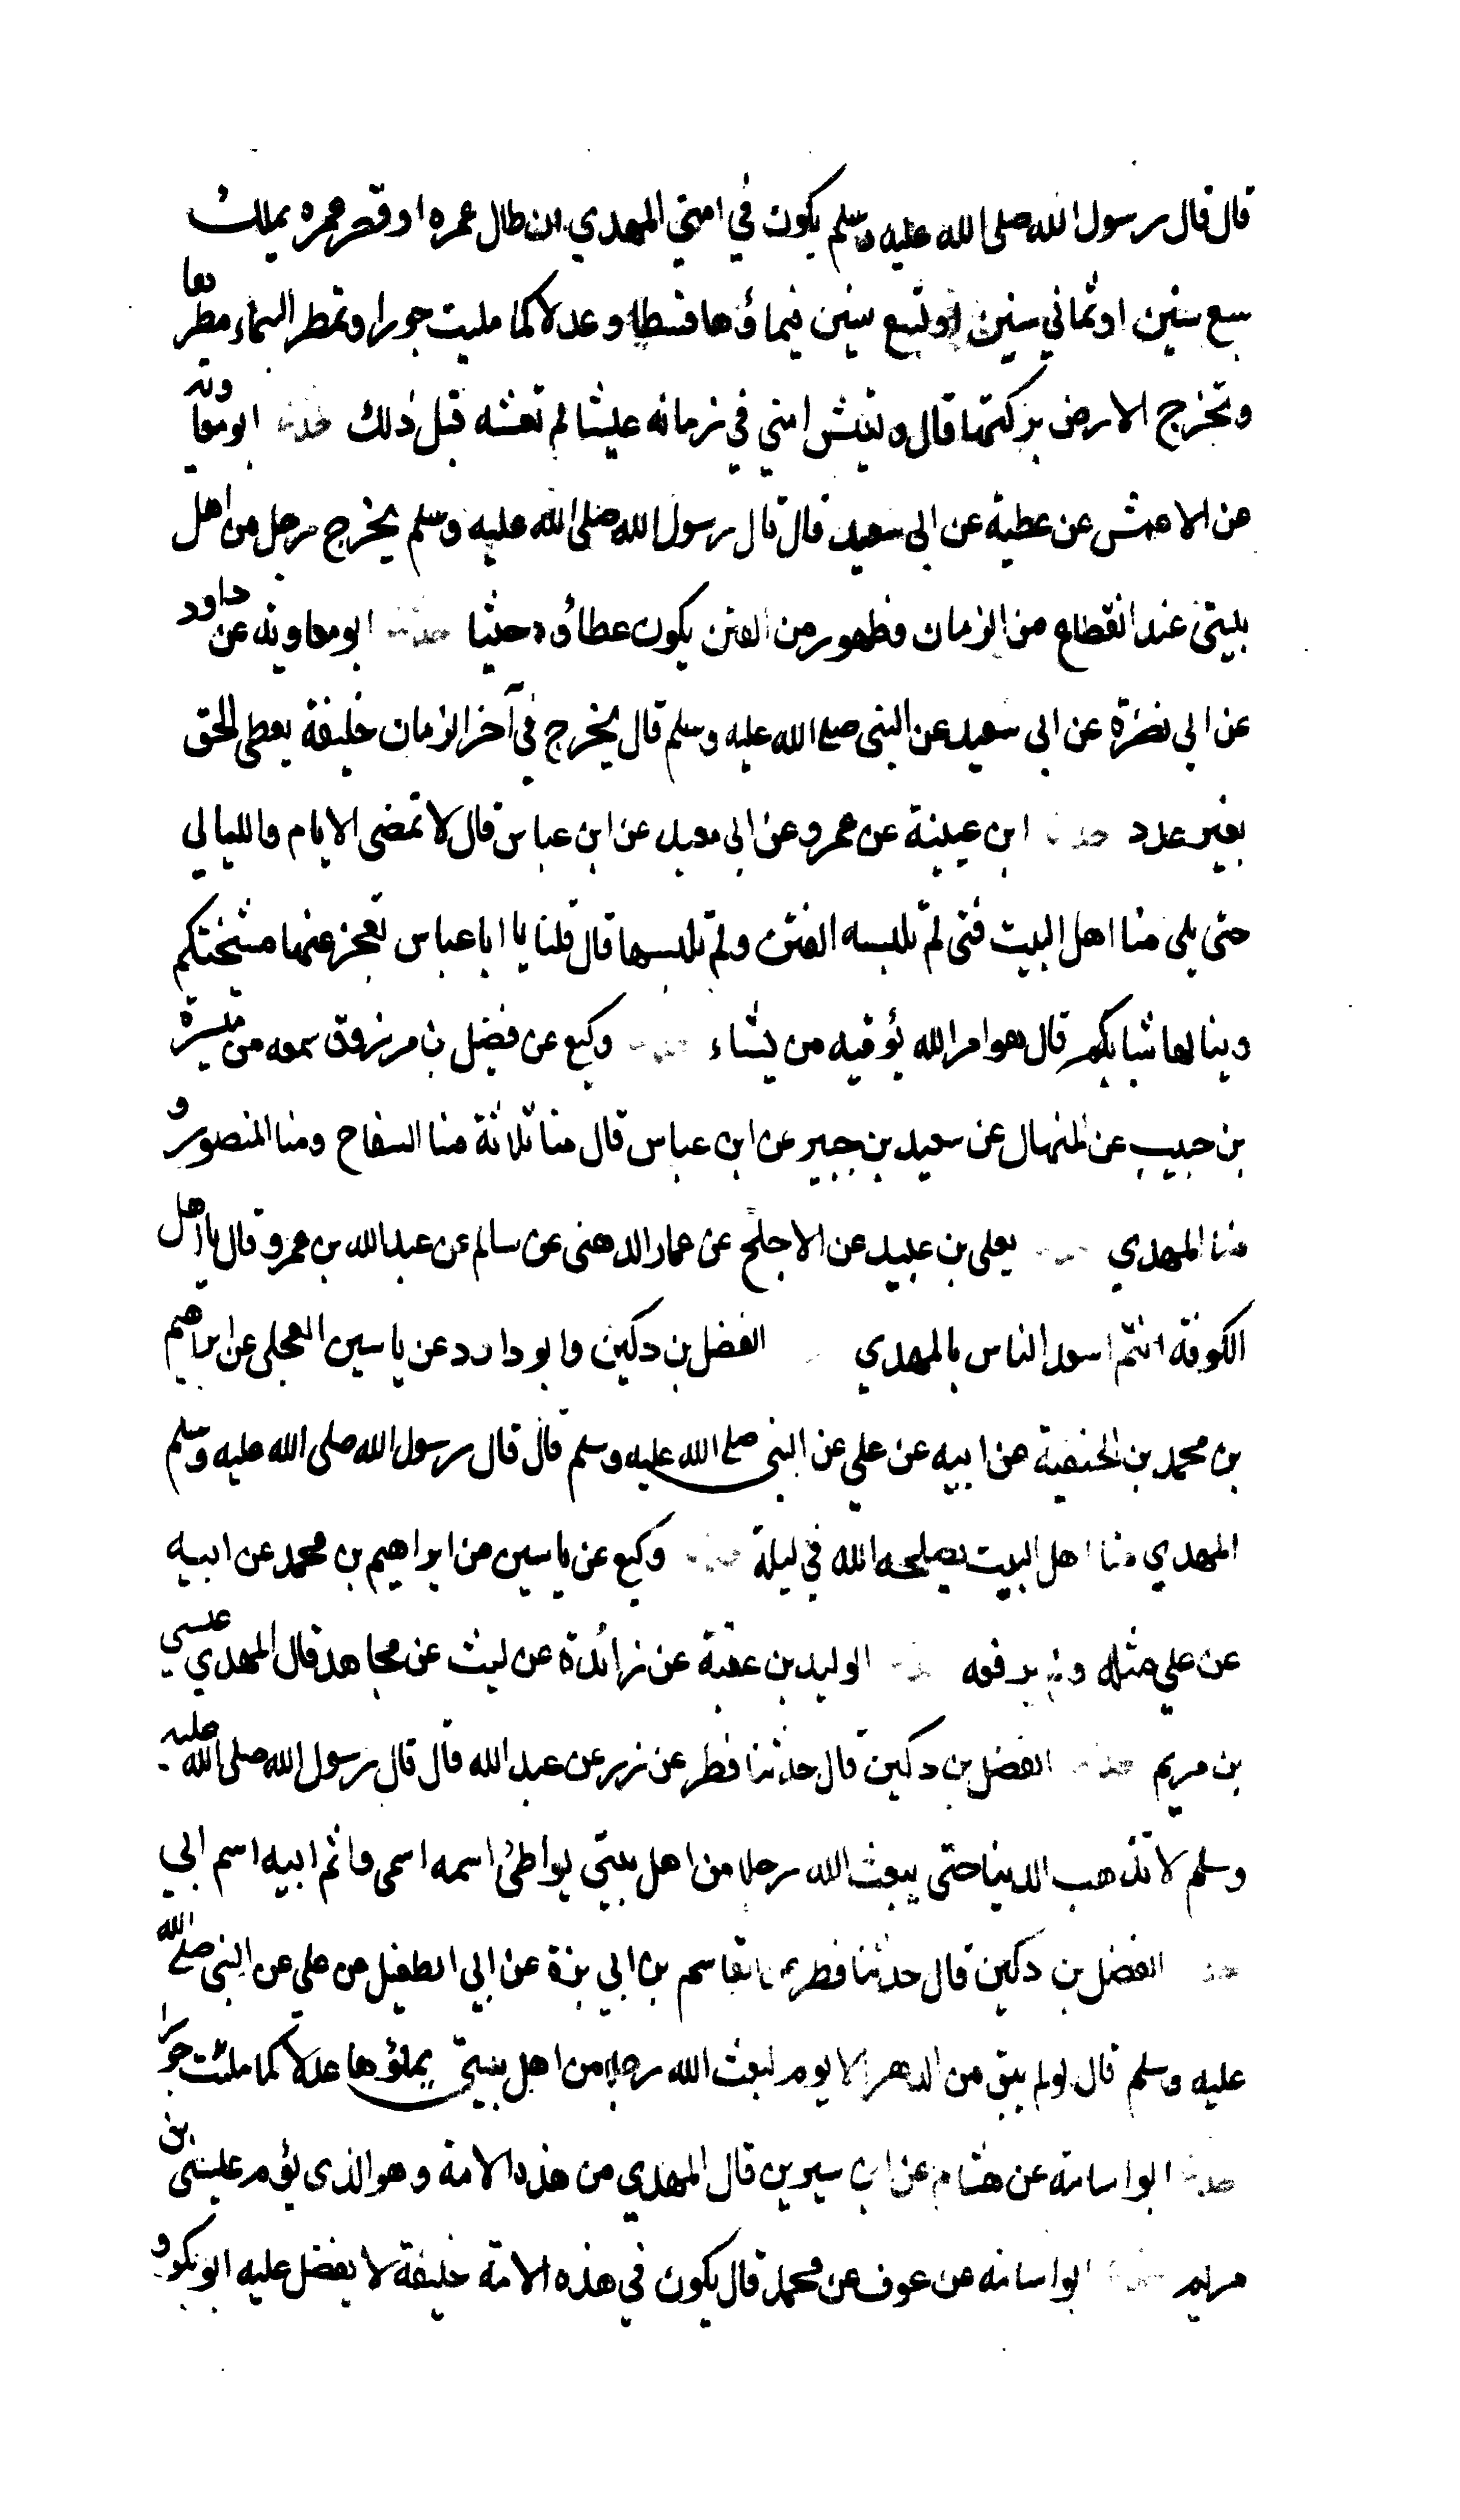 قال قال رسول الله صلى الله عليه وسلم يكون في امتي المهدي ان طال عمره او قصر عمره يملك
سبع سنين او ثماني سنين او تسع سنين فيملؤها قسطا وعدلا كما مليت جورا وتمطر السماء مطرها
وتخرج الارض بركتها قال وتعيش امتي في زمانه عيشا لم تعشه قبل ذلك حدثنا ابو معاوية
عن الاعمش عن عطية عن ابي سعيد قال قال رسول الله صلى الله عليه وسلم يخرج رجل من اهل
بيتي عند انقطاع من الزمان وظهور من الفتن يكون عطاؤه حثيا حدثنا ابو معاوية عن داود
عن ابي نضرة عن ابي سعيد عن النبي صلى الله عليه وسلم قال يخرج في آخر الزمان خليفة يعطي الحق
بغير عدد حدثنا ابن عيينة عن عمرو عن ابي معبد عن ابن عباس قال لا تمضي الايام والليالي
حتى يلي منا اهل البيت فتى لم تلبسه الفتن ولم يلبسها قال قلنا يا ابا عباس تعجز عنها مشيختكم
وينالها شبابكم قال هو امر الله يؤتيه من يشاء وكيع عن فضيل بن مرزوق سمعه من ميسرة
بن حبيب عن المنهال عن سعيد بن جبير عن ابن عباس قال منا ثلاثة منا السفاح ومنا المنصور و
منا المهدي يعلى بن عبيد عن الاجلح عن عمار الدهني عن سالم عن عبد الله بن عمرو قال يا اهل
الكوفة انتم اسعد الناس بالمهدي الفضل بن دكين وابو داود عن ياسين العجلي عن ابراهيم
بن محمد بن الحنفية عن ابيه عن علي عن النبي صلى الله عليه وسلم قال قال رسول الله صلى الله عليه وسلم
المهدي منا اهل البيت يصلحه الله في ليلة وكيع عن ياسين عن ابراهيم بن محمد عن ابيه
عن علي مثله ولم يرفعه الوليد بن عقبة عن زائدة عن ليث عن مجاهد قال المهدي عيسى
بن مريم حدثنا الفضل بن دكين قال حدثنا فطر عن زر عن عبد الله قال قال رسول الله صلى الله عليه
وسلم لا تذهب الدنيا حتى يبعث الله رجلا من اهل بيتي يواطئ اسمه اسمي واسم ابيه اسم ابي
الفضل بن دكين قال حدثنا فطر عن القاسم بن ابي بزة عن ابي الطفيل عن علي عن النبي صلى الله
عليه وسلم قال لو لم يبق من الدهر الا يوم لبعث الله رجلا من اهل بيتي يملؤها عدلا كما ملئت جورا
حدثنا ابو اسامة عن هشام عن ابن سيرين قال المهدي من هذه الامة وهو الذي يؤم عيسى بن
مريم ابو اسامة عن عوف عن محمد قال يكون في هذه الامة خليفة لا يفضل عليه ابو بكر و